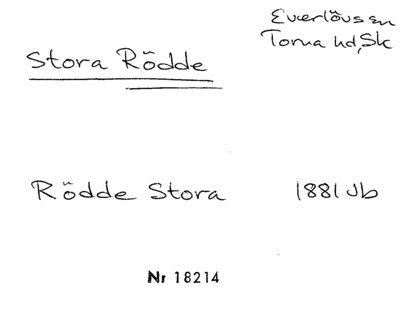 Everlövs sn
Torna hd, Sk
Stora Rödde
Rödde Stora 1881 Jb
Nr 18214